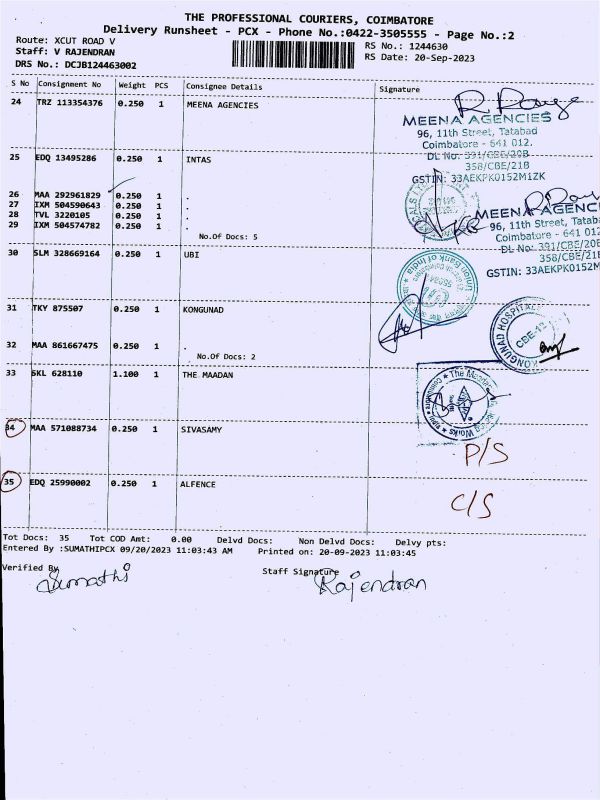 THE PROFESSIONAL COURIERS, COIMBATORE
Delivery Runsheet - PCX - Phone No.:0422-3505555 - Page No.:2
Route: XCUT ROAD V
RS No.: 1244630
Staff: V RAJENDRAN
RS Date: 20-Sep-2023
DRS No.: DCJB124463002
S No Consignment No Weight PCS Consignee Details Signature
24 TRZ 113354376 0.250 1 MEENA AGENCIES
MEENA AGENCIES
96, 11th Street, Tatabad
Coimbatore - 641 012.
DL No: 391/CBE/20B
358/CBE/21B
GSTIN: 33AEKPK0152M1ZK
25 EDQ 13495286 0.250 1 INTAS
26 MAA 292961829 0.250 1 .
27 IXM 504590643 0.250 1 .
28 TVL 3220105 0.250 1 .
29 IXM 504574782 0.250 1 .
No.Of Docs: 5
MEENA AGENC
96, 11th Street, Tataba
Coimbatore - 641 012
DL No: 391/CBE/20B
358/CBE/21B
GSTIN: 33AEKPK0152M
30 SLM 328669164 0.250 1 UBI
Union Bank of India
31 TKY 875507 0.250 1 KONGUNAD
KONGUNAD HOSPITAL
CBE-12
32 MAA 861667475 0.250 1 .
No.Of Docs: 2
33 SKL 628110 1.100 1 THE MAADAN
The Maadan
Works
34 MAA 571088734 0.250 1 SIVASAMY
P/S
35 EDQ 25990002 0.250 1 ALFENCE
C/S
Tot Docs: 35 Tot COD Amt: 0.00 Delvd Docs: Non Delvd Docs: Delvy pts:
Entered By :SUMATHIPCX 09/20/2023 11:03:43 AM Printed on: 20-09-2023 11:03:45
Verified By Staff Signature
Sumathi Rajendran